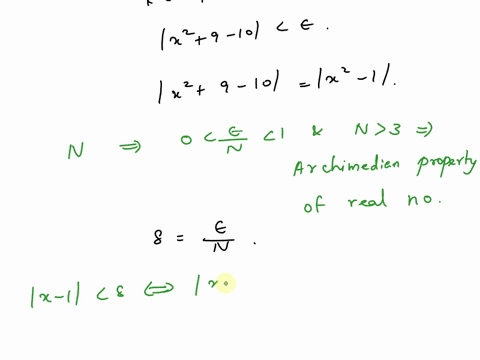 |x² + 9 - 10| < ϵ.
|x² + 9 - 10| = |x² - 1|.
N ⇒ 0 < ϵ/N < 1 & N > 3 ⇒
Archimedien property
of real no.
δ = ϵ/N .
|x-1| < δ ⇔ |x